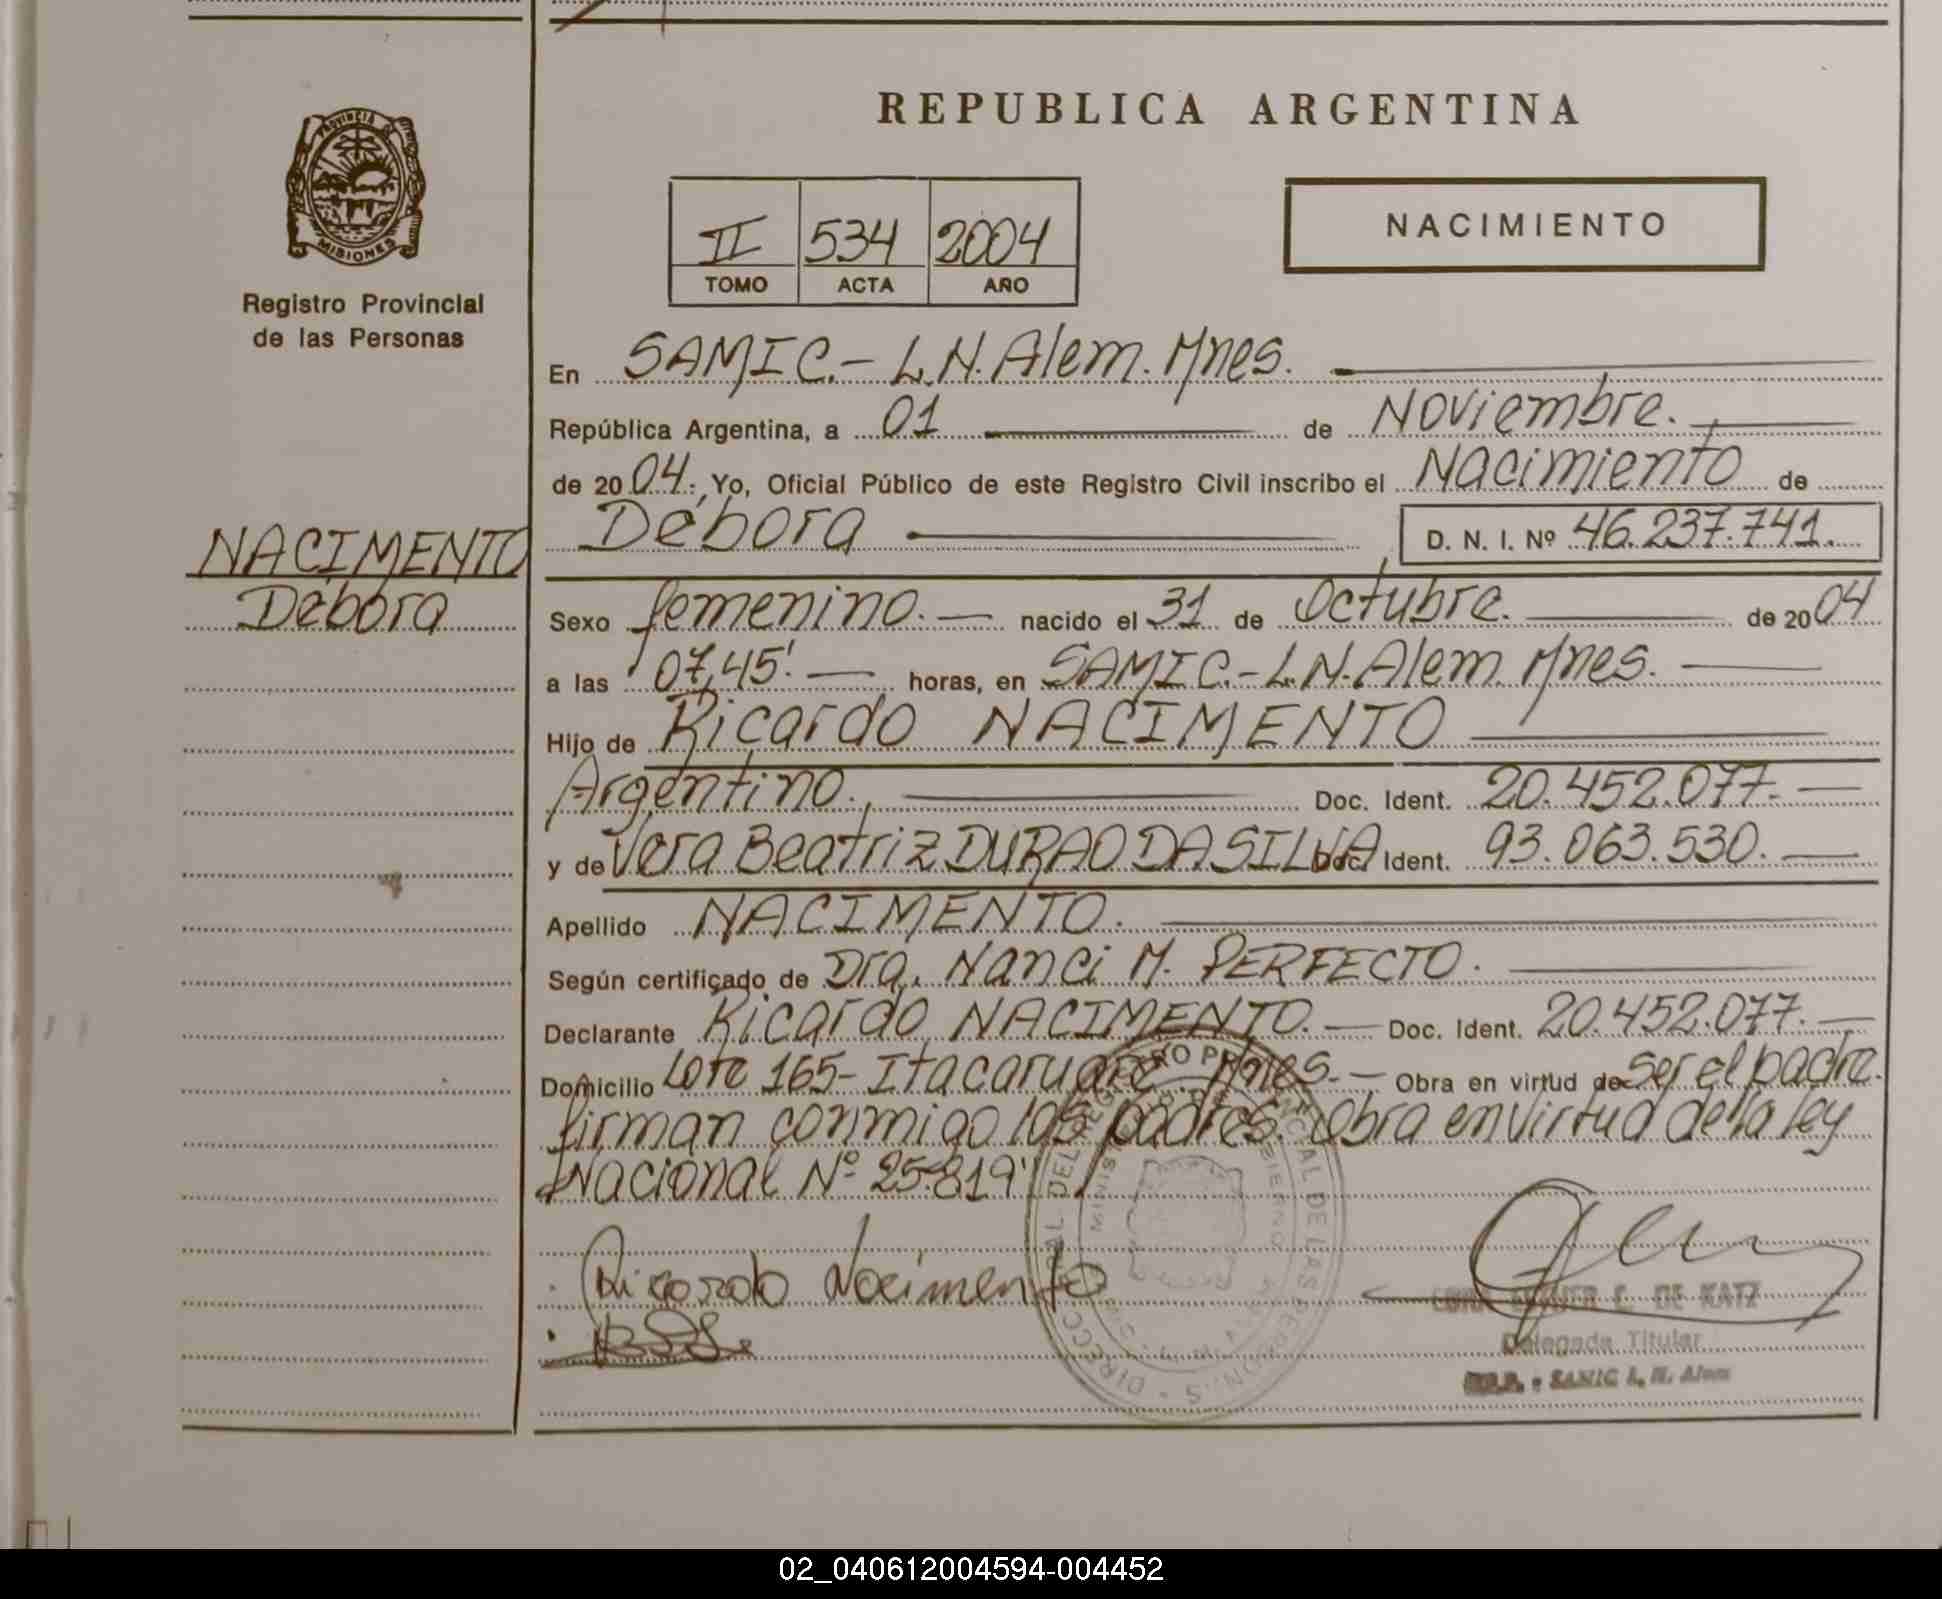 REPUBLICA ARGENTINA
PROVINCIA DE
MISIONES
Registro Provincial
de las Personas
II 534 2004
TOMO ACTA AÑO
NACIMIENTO
En SAMIC.- L.N. Alem. Mnes.
República Argentina, a 01 de Noviembre.
de 2004. Yo, Oficial Público de este Registro Civil inscribo el Nacimiento de
NACIMENTO
Débora
Débora D. N. I. Nº 46.237.741.
Sexo femenino. nacido el 31 de Octubre. de 2004
a las 07,45'. horas, en SAMIC.- L.N. Alem. Mnes.
Hijo de Ricardo NACIMENTO
Argentino., Doc. Ident. 20.452.077.
y de Vera Beatriz DURAO DA SILVA Doc. Ident. 93.063.530.
Apellido NACIMENTO.
Según certificado de Dra. Nanci M. PERFECTO.
Declarante Ricardo NACIMENTO. Doc. Ident. 20.452.077.
Domicilio Lote 165- Itacaruaré. Mnes. Obra en virtud de ser el padre.
firman conmigo los padres. Obra en virtud de la ley
Nacional Nº 25.819"
Ricardo Nacimento
DE KATZ
Delegada Titular
SAMIC L. N. Alem
02_040612004594-004452